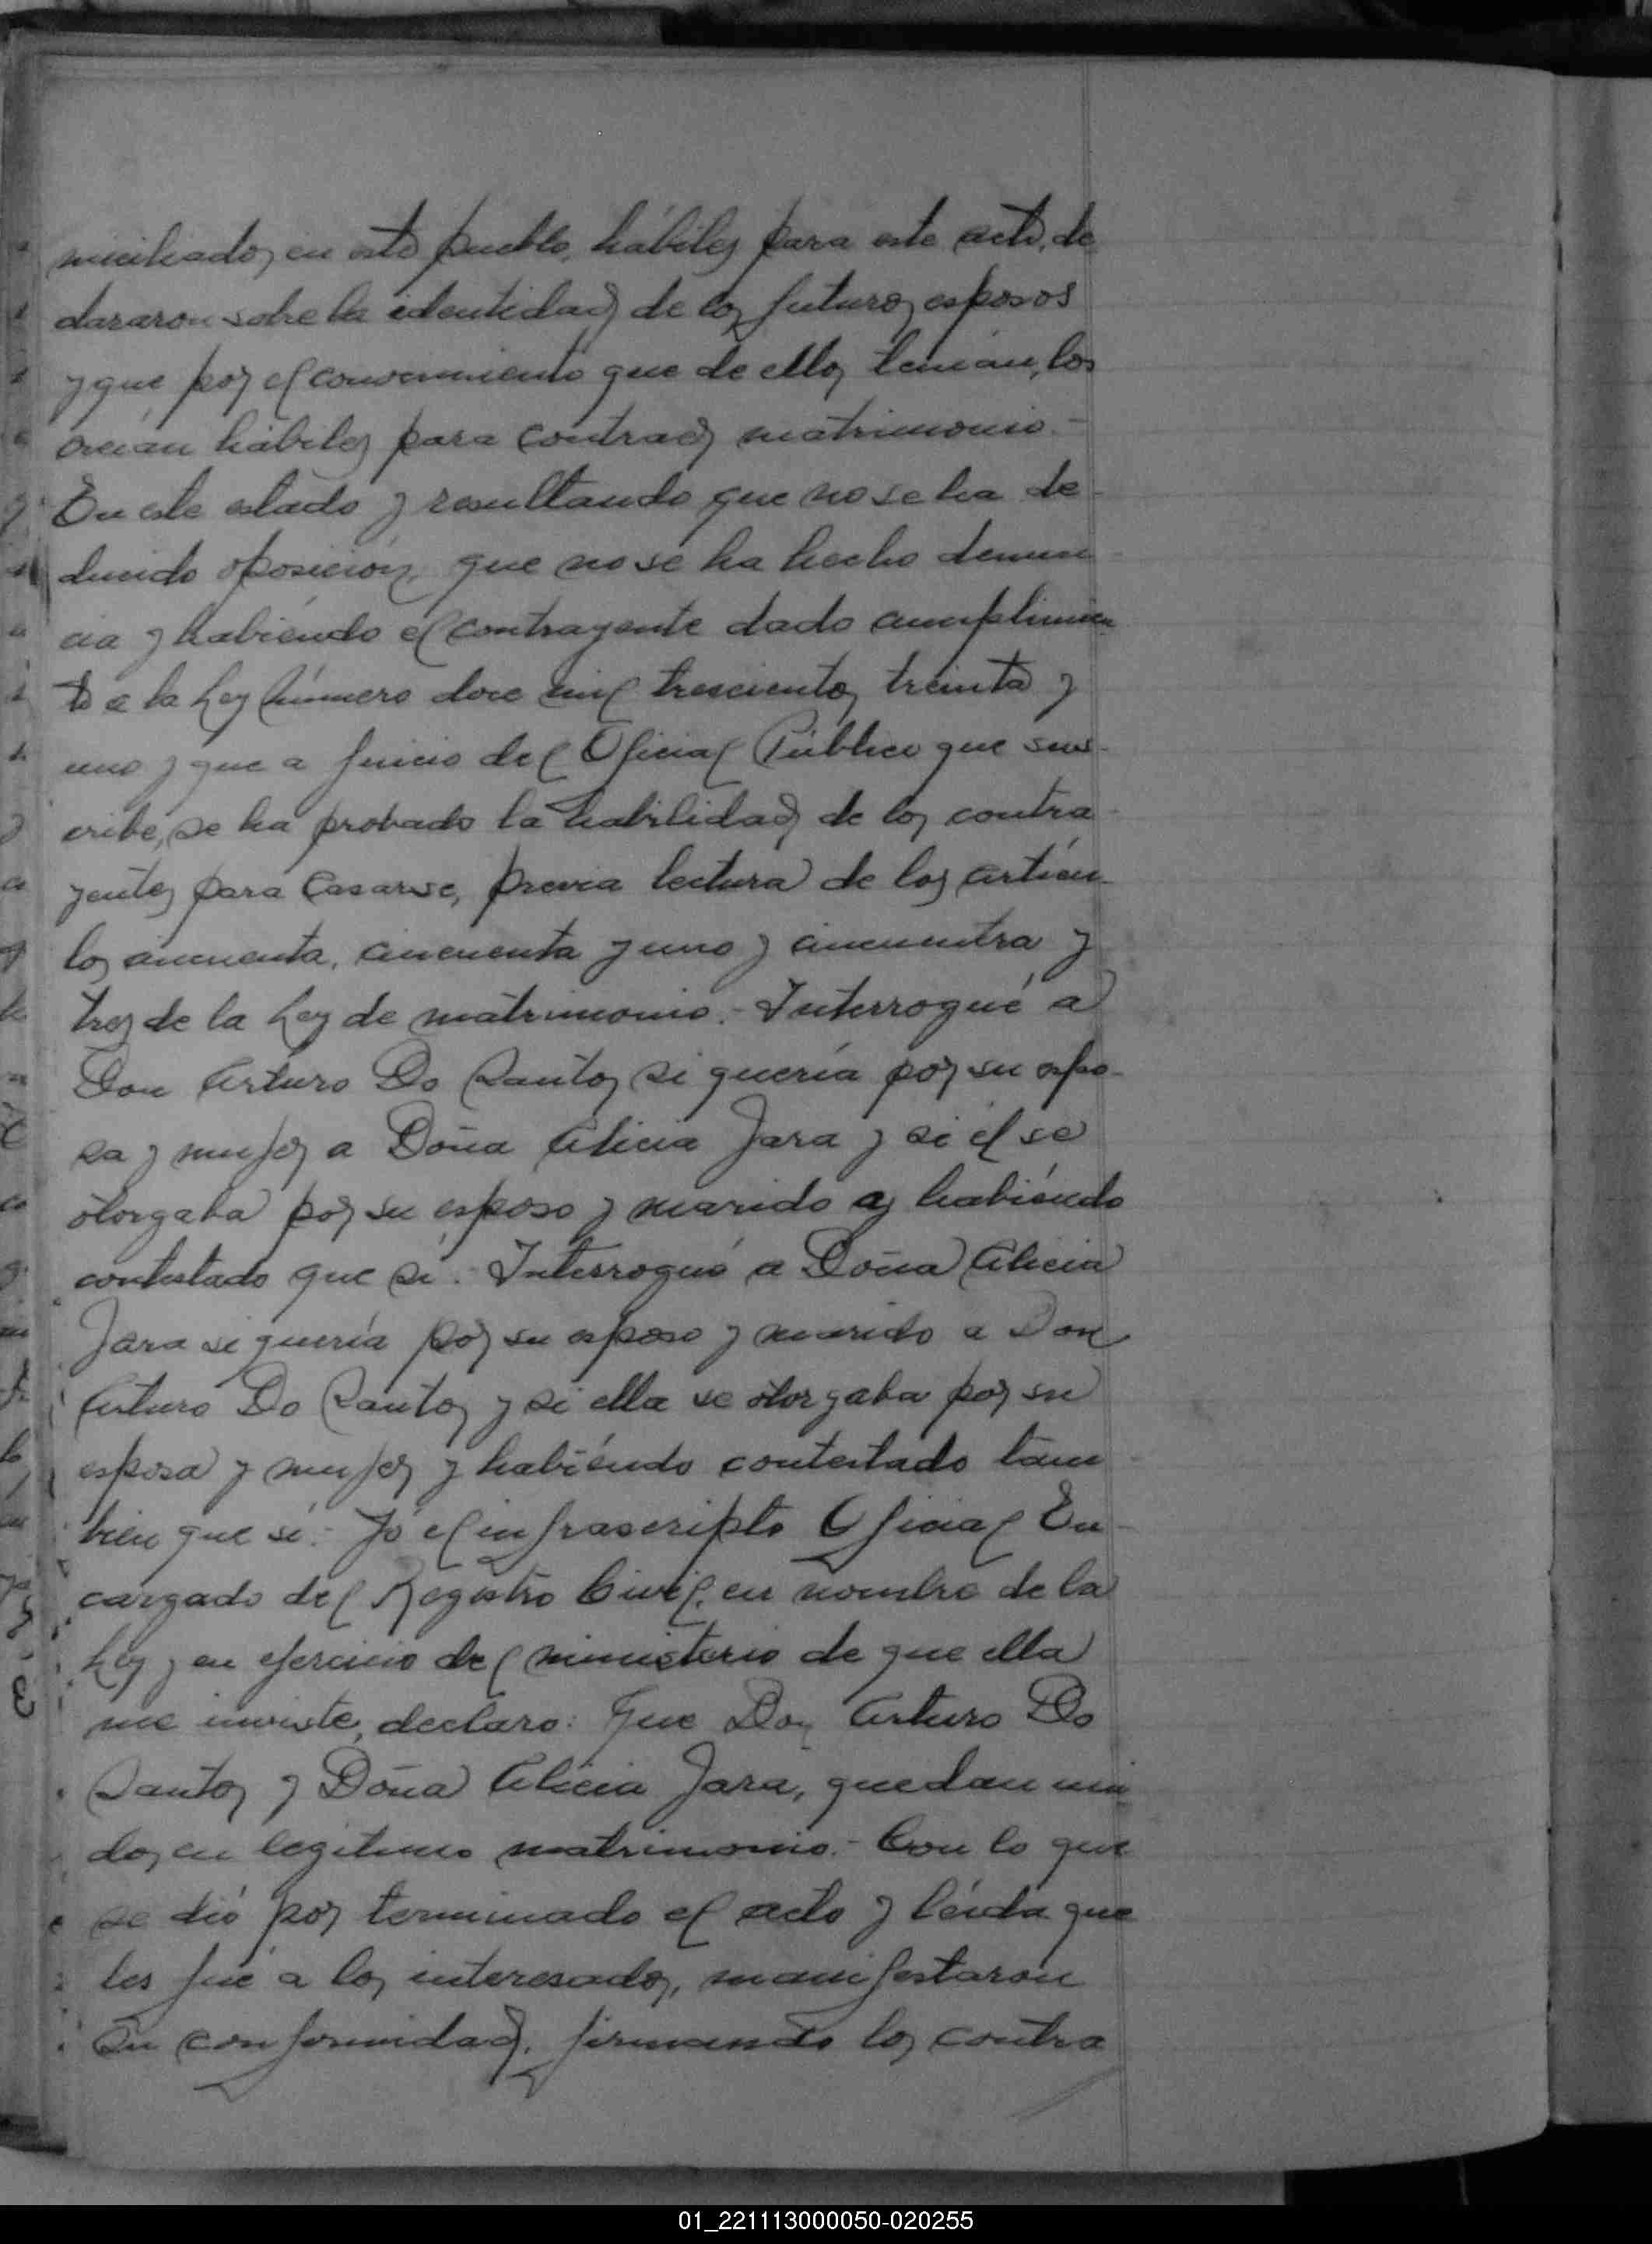 miciliados en este pueblo, hábiles para este acto, de
clararon sobre la identidad de los futuros esposos
y que por el convenimiento que de ellos tenían, los
creían hábiles para contraer matrimonio.-
En este estado y resultando que no se ha de-
ducido oposición, que no se ha hecho denun-
cia y habiendo el contrayente dado cumplimien
to a la Ley Número doce mil trescientos treinta y
uno y que a juicio del Oficial Público que sus-
cribe, se ha probado la habilidad de los contra-
yentes para casarse, previa lectura de los artícu-
los cincuenta, cincuenta y uno y cincuentra y
tres de la Ley de matrimonio.- Interrogué a
Don Arturo Do Santos si quería por su espo-
sa y mujer a Doña Alicia Jara y si él se
otorgaba por su esposo y marido y habiéndo
contestado que sí.- Interrogué a Doña Alicia
Jara si quería por su esposo y marido a Don
Arturo Do Santos y si ella se otorgaba por su
esposa y mujer y habiéndo contestado tam-
bien que sí.- Yo el infrascripto Oficial En-
cargado del Registro Civil, en nombre de la
Ley y en ejercicio del ministerio de que ella
me inviste, declaro: Que Don Arturo Do
Santos y Doña Alicia Jara, quedan uni
dos en legítimo matrimonio.- Con lo que
se dió por terminado el acto y leída que
les fué a los interesados, manifestaron
su conformidad, firmando los contra
01_221113000050-020255